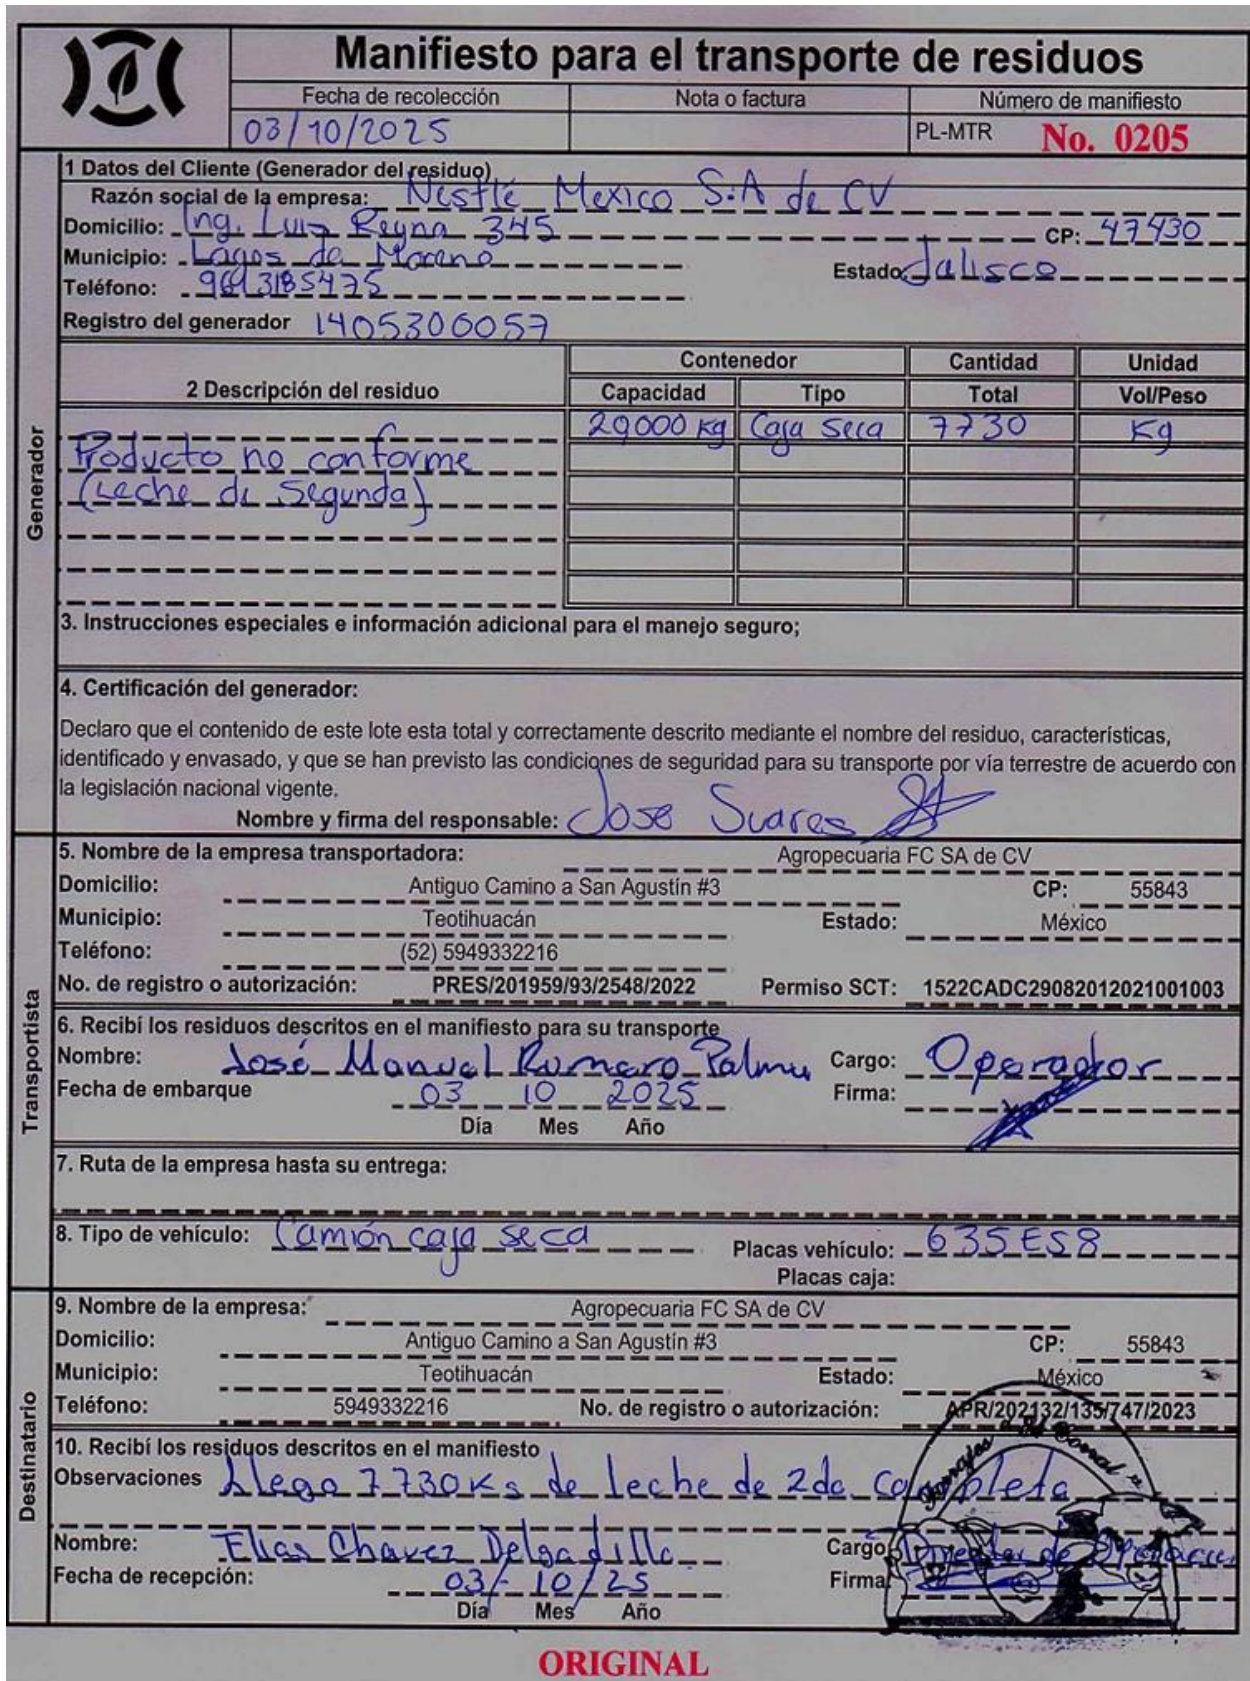 Manifiesto para el transporte de residuos
Fecha de recolección Nota o factura Número de manifiesto
03/10/2025 PL-MTR No. 0205
Generador
1 Datos del Cliente (Generador del residuo)
Razón social de la empresa: Nestlé Mexico S.A de CV
Domicilio: Ing. Luis Reyna 345 CP: 47430
Municipio: Lagos de Moreno Estado: Jalisco
Teléfono:
Registro del generador 1405306057
2 Descripción del residuo Contenedor Cantidad Unidad
Capacidad Tipo Total Vol/Peso
29000 kg Caja seca 7730 Kg
Producto no conforme
(Leche de Segunda)
3. Instrucciones especiales e información adicional para el manejo seguro;
4. Certificación del generador:
Declaro que el contenido de este lote esta total y correctamente descrito mediante el nombre del residuo, características,
identificado y envasado, y que se han previsto las condiciones de seguridad para su transporte por vía terrestre de acuerdo con
la legislación nacional vigente.
Nombre y firma del responsable: Jose Suares
Transportista
5. Nombre de la empresa transportadora: Agropecuaria FC SA de CV
Domicilio: Antiguo Camino a San Agustín #3 CP: 55843
Municipio: Teotihuacán Estado: México
Teléfono: (52) 5949332216
No. de registro o autorización: PRES/201959/93/2548/2022 Permiso SCT: 1522CADC29082012021001003
6. Recibí los residuos descritos en el manifiesto para su transporte
Nombre: José Manuel Romero Palma Cargo: Operador
Fecha de embarque 03 10 2025 Firma:
Día Mes Año
7. Ruta de la empresa hasta su entrega:
8. Tipo de vehículo: Camión caja seca Placas vehículo: 635ES8
Placas caja:
Destinatario
9. Nombre de la empresa: Agropecuaria FC SA de CV
Domicilio: Antiguo Camino a San Agustín #3 CP: 55843
Municipio: Teotihuacán Estado: México
Teléfono: 5949332216 No. de registro o autorización: APR/202132/135/747/2023
10. Recibí los residuos descritos en el manifiesto
Observaciones Llego 7730Ks de leche de 2da completa
Nombre: Elias Chavez Delgadillo Cargo: Director de
Fecha de recepción: 03/10/25 Firma:
Día Mes Año
Forrajes El Corral
ORIGINAL